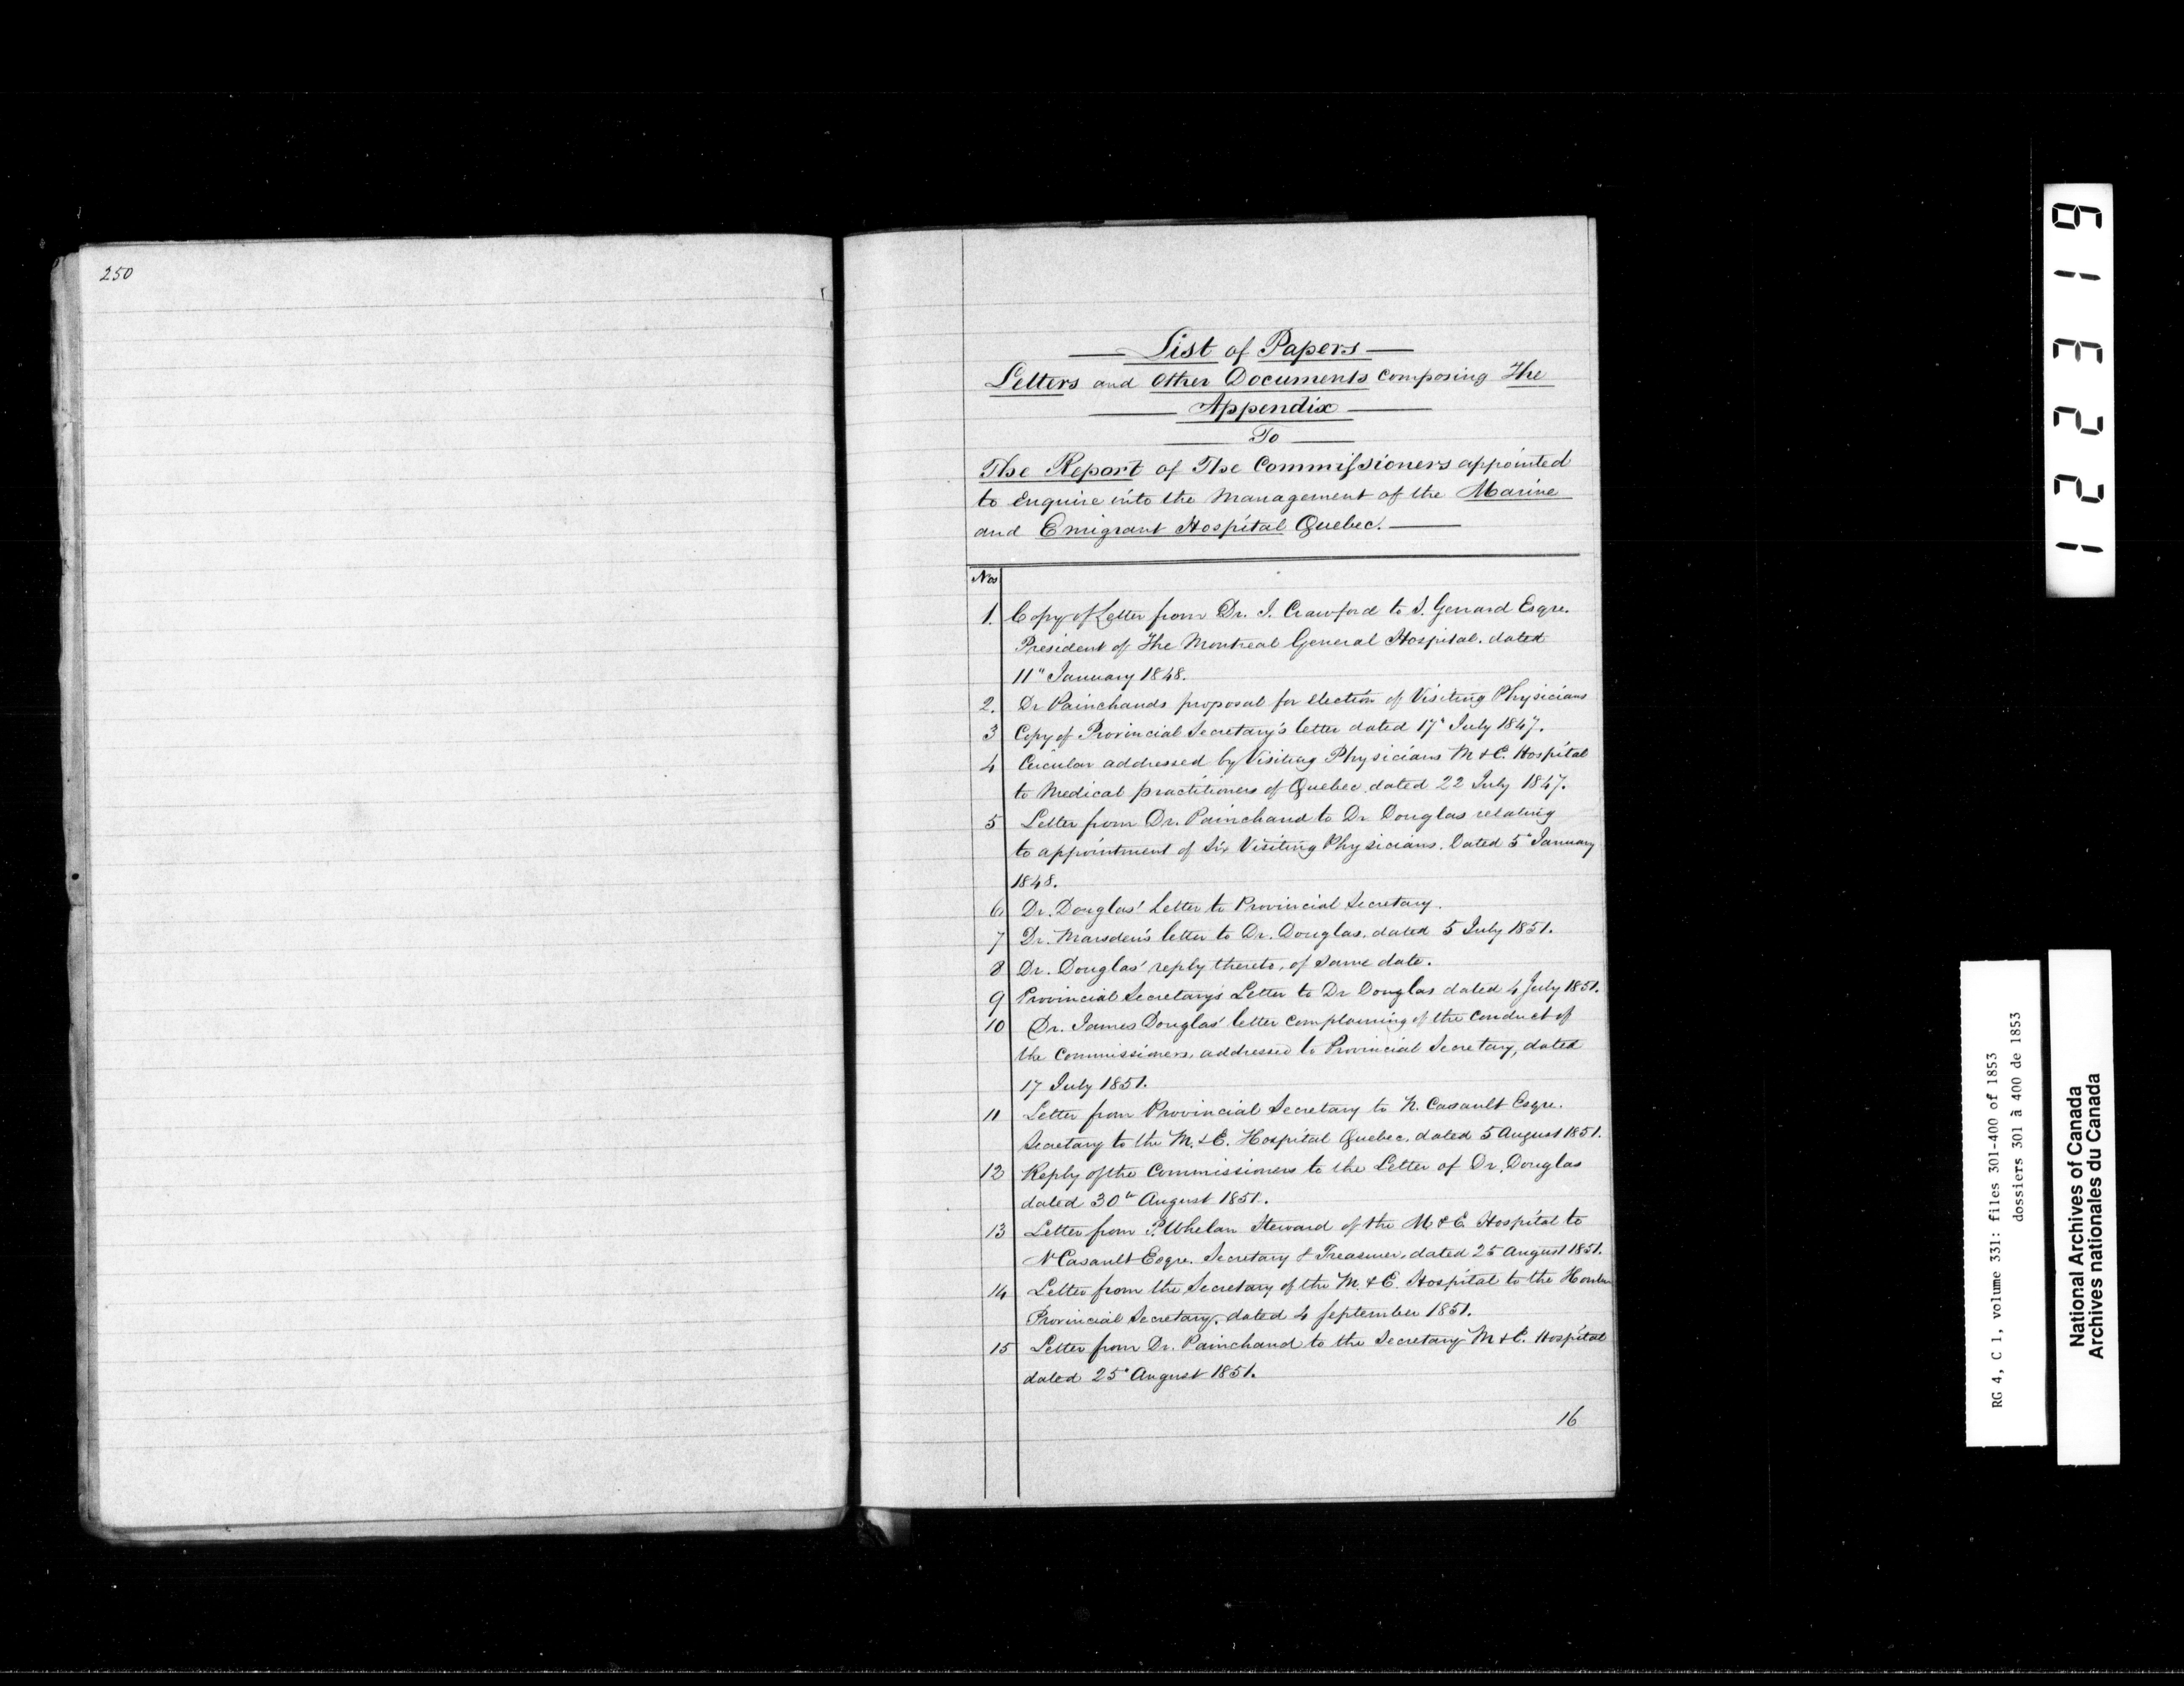 250
List of Papers
Letters and Other Documents composing The
Appendix
To
The Report of The Commissioners appointed
to Enquire into the Management of the Marine
and Emigrant Hospital Quebec.
Nos
1. Copy of Letter from Dr. J. Crawford to S. Gerrard Esqre.
President of The Montreal General Hospital. dated
11" January 1848.
2. Dr Painchauds proposal for election of Visiting Physicians
3 Copy of Provincial Secretary's letter dated 17" July 1847.
4 Circular addressed by Visiting Physicians M & E. Hospital
to Medical practitioners of Quebec dated 22 July 1847.
5 Letter from Dr. Painchaud to Dr Douglas relating
to appointment of Six Visiting Physicians. Dated 5" January
1848.
6 Dr. Douglas' Letter to Provincial Secretary.
7 Dr. Marsden's letter to Dr. Douglas, dated 5 July 1851.
8 Dr. Douglas' reply thereto, of same date.
9 Provincial Secretary's Letter to Dr Douglas dated 4 July 1851.
10 Dr. James Douglas' letter complaining of the conduct of
the Commissioners, addressed to Provincial Secretary, dated
17 July 1851.
11 Letter from Provincial Secretary to N. Casault Esqre.
Secretary to the M. & E. Hospital Quebec, dated 5 August 1851.
12 Reply of the Commissioners to the Letter of Dr. Douglas
dated 30th August 1851.
13 Letter from P. Whelan Steward of the M & E Hospital to
N Casault Esqre. Secretary & Treasurer, dated 25 August 1851.
14 Letter from the Secretary of the M. & E. Hospital to the
Provincial Secretary, dated 4 September 1851.
15 Letter from Dr. Painchaud to the Secretary M & E. Hospital
dated 25" August 1851.
16
122319
RG 4, C 1, volume 331: files 301-400 of 1853
dossiers 301 à 400 de 1853
National Archives of Canada
Archives nationales du Canada